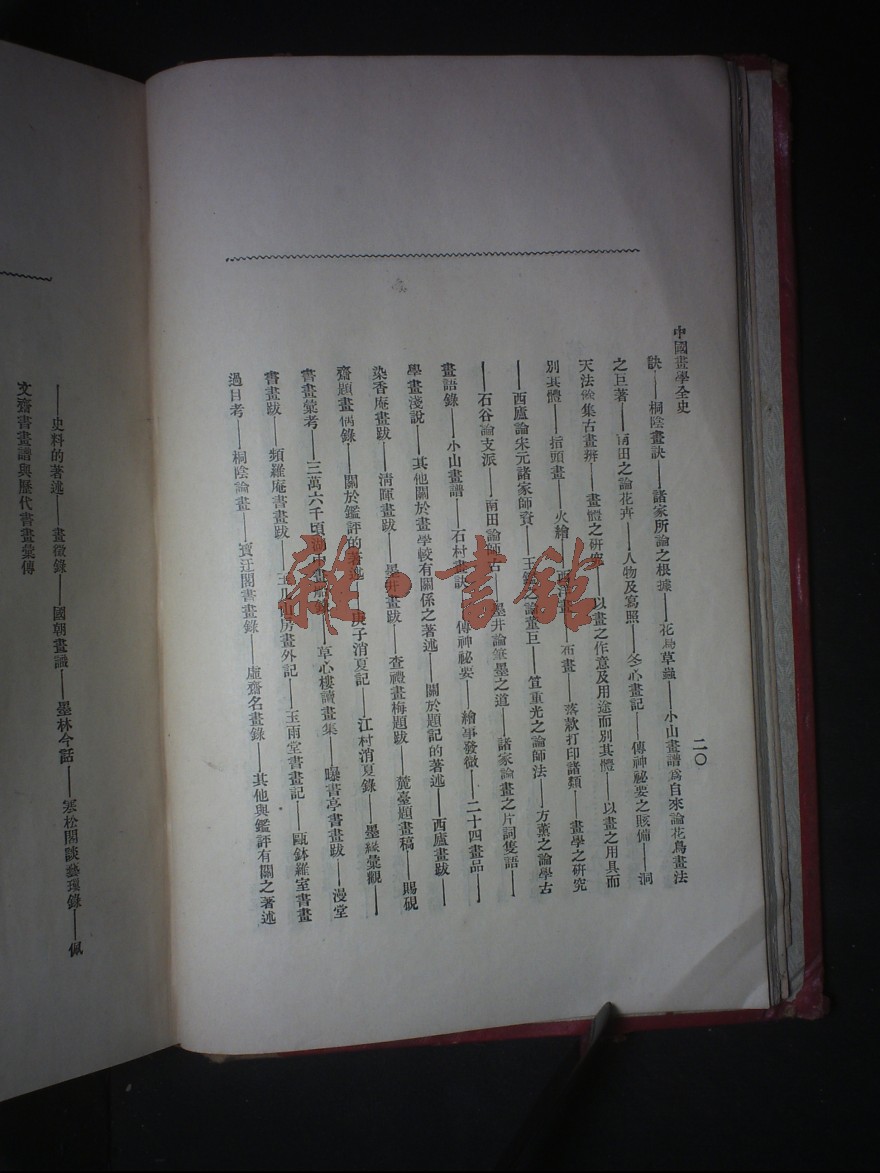 中國畫學全史
二〇
訣——桐陰畫訣——諸家所論之根據——花鳥草蟲——小山畫譜爲自來論花鳥畫法
之巨著——南田之論花卉——人物及寫照——冬心畫記——傳神祕要之賅備——洞
天法錄集古畫辨——畫體之研究——以畫之作意及用途而別其體——以畫之用具而
別其體——指頭畫——火繪——西洋畫——布畫——落款打印諸類——畫學之研究
——西廬論宋元諸家師資——王鑑之論董巨——笪重光之論師法——方薰之論學古
——石谷論支派——南田論師古——墨井論筆墨之道——諸家論畫之片詞隻語——
畫語錄——小山畫譜——石村畫訣——傳神祕要——繪事發微——二十四畫品——
學畫淺說——其他關於畫學較有關係之著述——關於題記的著述——西廬畫跋——
染香庵畫跋——清暉畫跋——墨井畫跋——查禮畫梅題跋——麓臺題畫稿——賜硯
齋題畫偶錄——關於鑑評的著述——庚子消夏記——江村消夏錄——墨緣彙觀——
書畫彙考——三萬六千頃湖中畫船錄——草心樓讀畫集——曝書亭書畫跋——漫堂
書畫跋——頻羅庵書畫跋——玉几山房畫外記——玉雨堂書畫記——甌鉢羅室書畫
過目考——桐陰論畫——寶迂閣書畫錄——虛齋名畫錄——其他與鑑評有關之著述
——史料的著述——畫徵錄——國朝畫識——墨林今話——寒松閣談藝瑣錄——佩
文齋書畫譜與歷代書畫彙傳
雜·書館